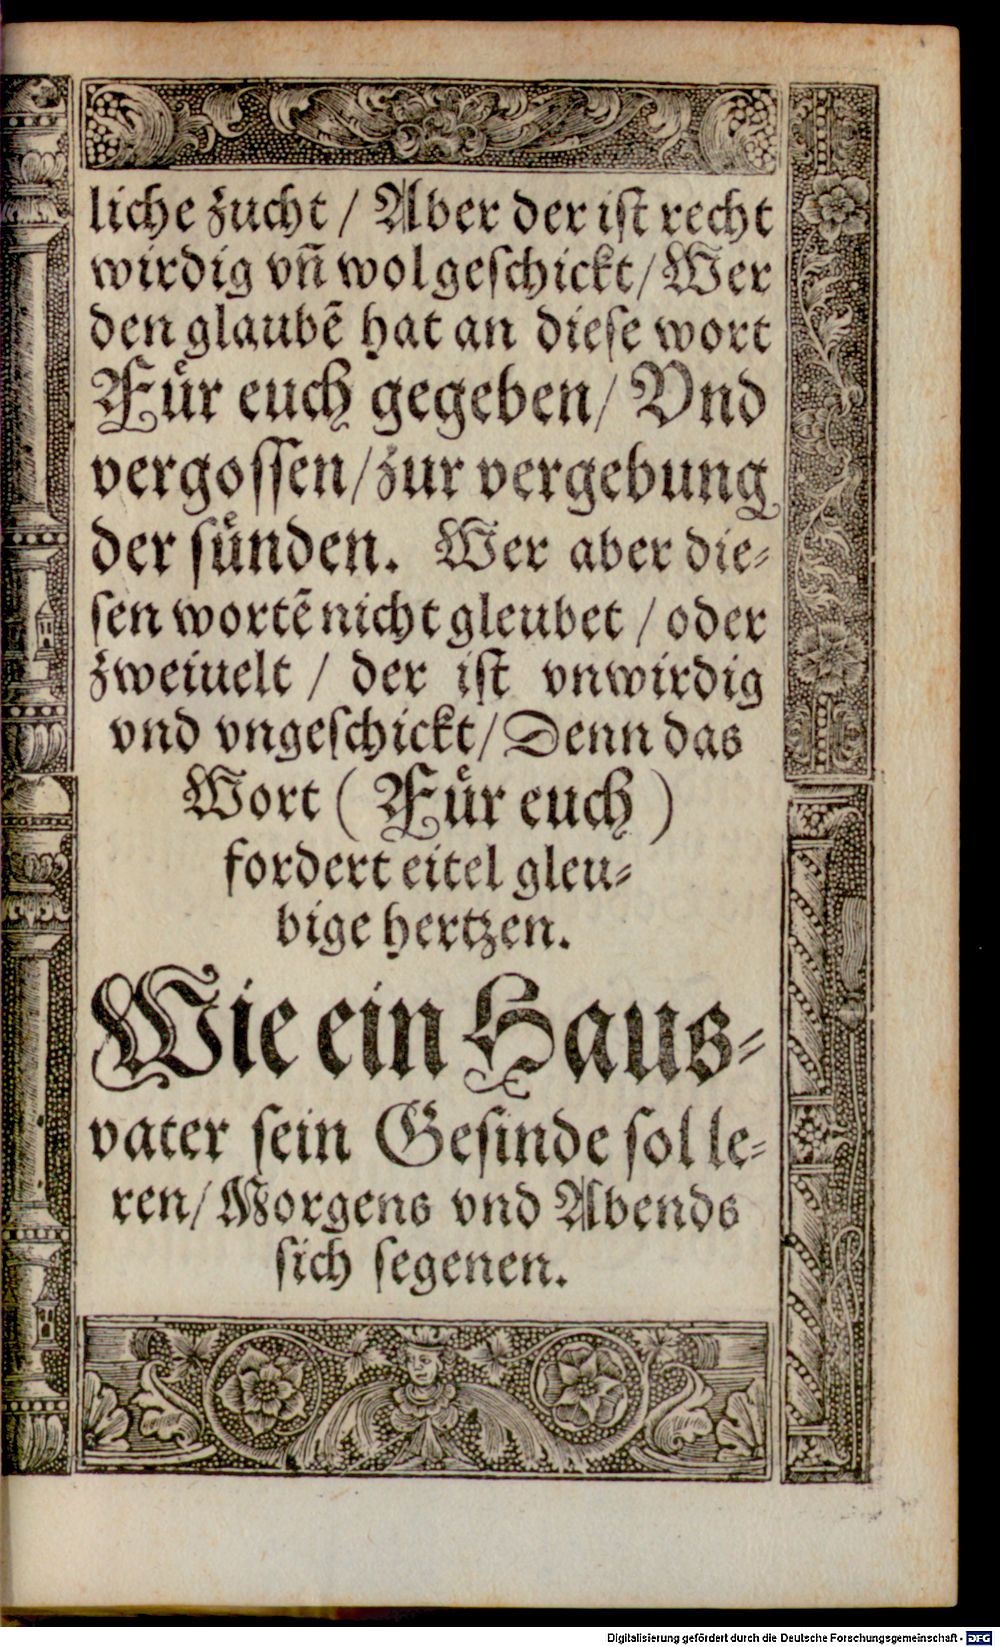 liche zucht / Aber der iſt recht
wirdig vñ wol geſchickt / Wer
den glaubẽ hat an dieſe wort
Fuͤr euch gegeben / Vnd
vergoſſen / zur vergebung
der ſuͤnden. Wer aber die⸗
ſen wortẽ nicht gleubet / oder
zweiuelt / der iſt vnwirdig
vnd vngeſchickt / Denn das
Wort ( Fuͤr euch )
fordert eitel gleu⸗
bige hertzen.
Wie ein Haus⸗
vater ſein Geſinde ſol le⸗
ren / Morgens vnd Abends
ſich ſegenen.
Digitalisierung gefördert durch die Deutsche Forschungsgemeinschaft - DFG